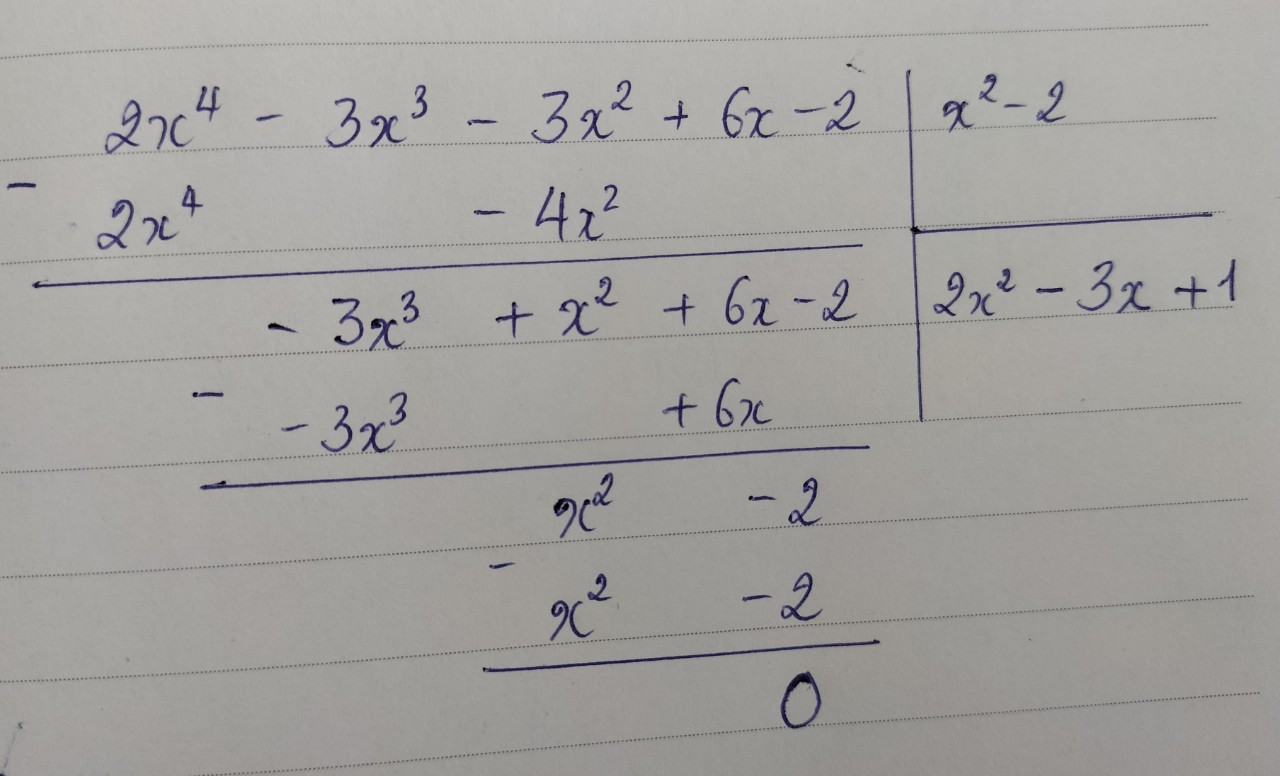 2x⁴ - 3x³ - 3x² + 6x - 2 | x² - 2
-
2x⁴ - 4x²
- 3x³ + x² + 6x - 2 | 2x² - 3x + 1
-
- 3x³ + 6x
x² - 2
-
x² - 2
0